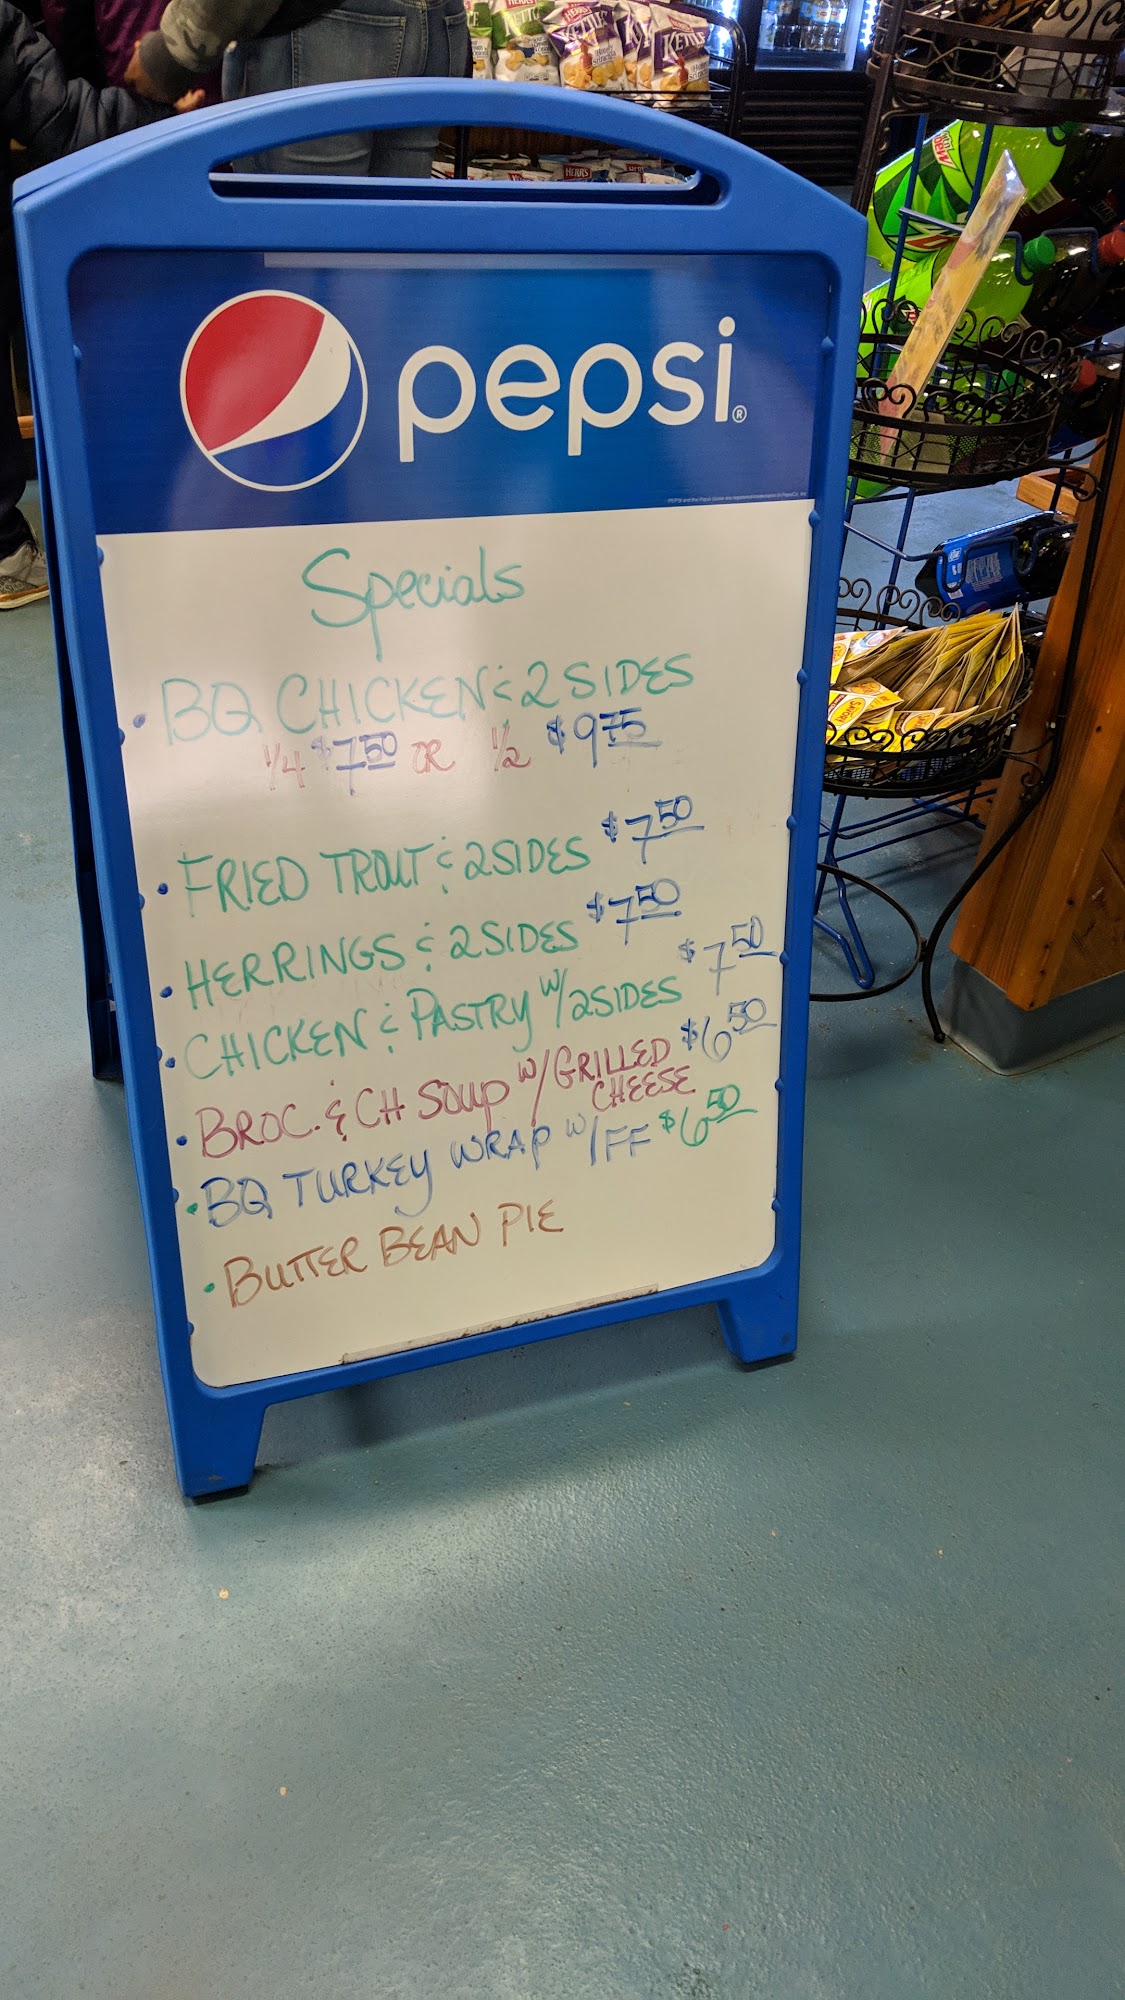 HERR'S
KETTLE
KETTLE
HERR'S
HERR'S
pepsi®
Specials
• BQ CHICKEN & 2 SIDES
1/4 $7.50 OR 1/2 $9.75
• FRIED TROUT & 2 SIDES $7.50
• HERRINGS & 2 SIDES $7.50
• CHICKEN & PASTRY W/2 SIDES $7.50
• BROC. & CH SOUP W/GRILLED CHEESE $6.50
• BQ TURKEY WRAP W/FF $6.50
• BUTTER BEAN PIE